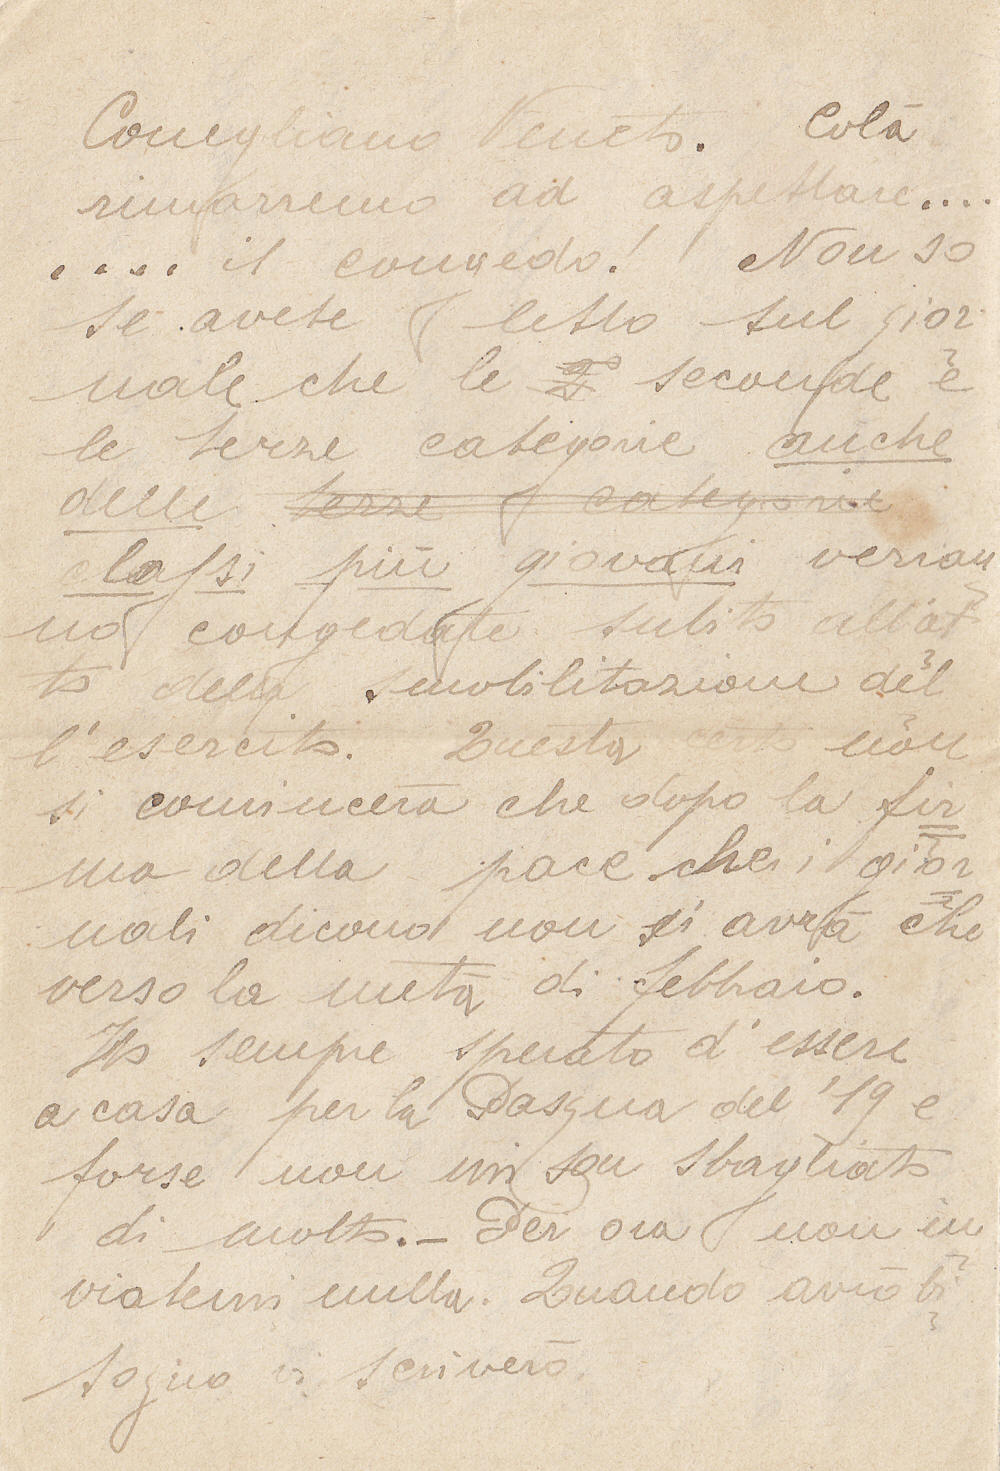 Conegliano Veneto. Colà
rimarremo ad aspettare....
..... il congedo! Non so
se avete letto sul gior
nale che le seconde e
le terze categorie anche
delle terze categorie
classi più giovani verran
no congedate subito all'at
to della smobilitazione del
l'esercito. Questa certo non
si comincerà che dopo la fir
ma della pace che i gior
nali dicono non si avrà che
verso la metà di febbraio.
Ho sempre sperato d'essere
a casa per la Pasqua del '19 e
forse non mi son sbagliato
di molto.— Per ora non in
viatemi nulla. Quando avrò bi
sogno vi scriverò.